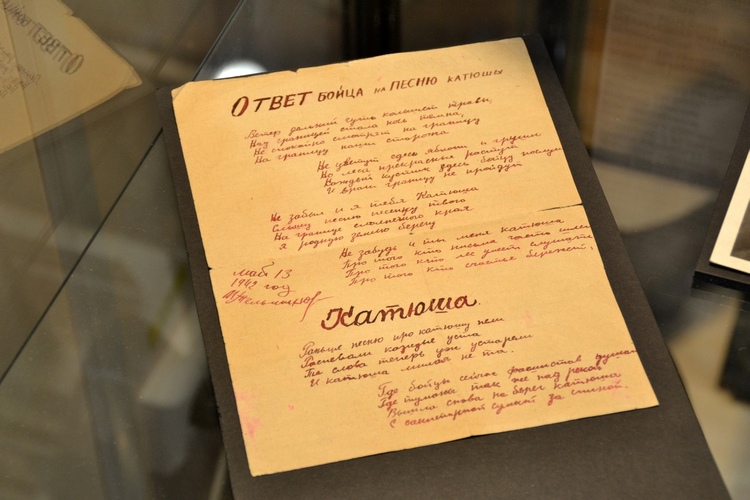 ОТВЕТ БОЙЦА НА ПЕСНЮ КАТЮШЫ
Ветер дальний чуть колышет травы,
Над границей стала ночь темна,
Но спокойно смотрят на границу
На границу наши сторона
Не цветут здесь яблони и груши
Но леса прекрасные растут
Каждый кустик здесь бойцу послушен
И враги границу не пройдут
Не забыл и я тебя Катюша
Слышу песню песенку твою
На границе далёкого края
Я родную землю берегу
Не забудь и ты меня катюша
Про того кто письма часто шлет
Про того кто лес умеет слушать
Про того кто счастье бережет.
май 13
1942 год
Катюша.
Раньше песню про катюшу пели
Распевали каждые уста
Те слова теперь уж устарели
И катюша милая не та.
Где бойцы сейчас фашистов
Где туманы так же над рекой
Вышла снова на берег катюша
С санитарной сумкой за спиной.